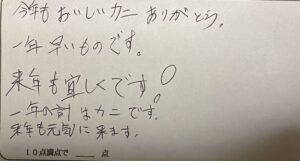 今年もおいしいカニありがとう。
一年早いものです。
来年も宜しくです!
一年の計はカニです。
来年も元気に来ます。
10点満点で ____ 点